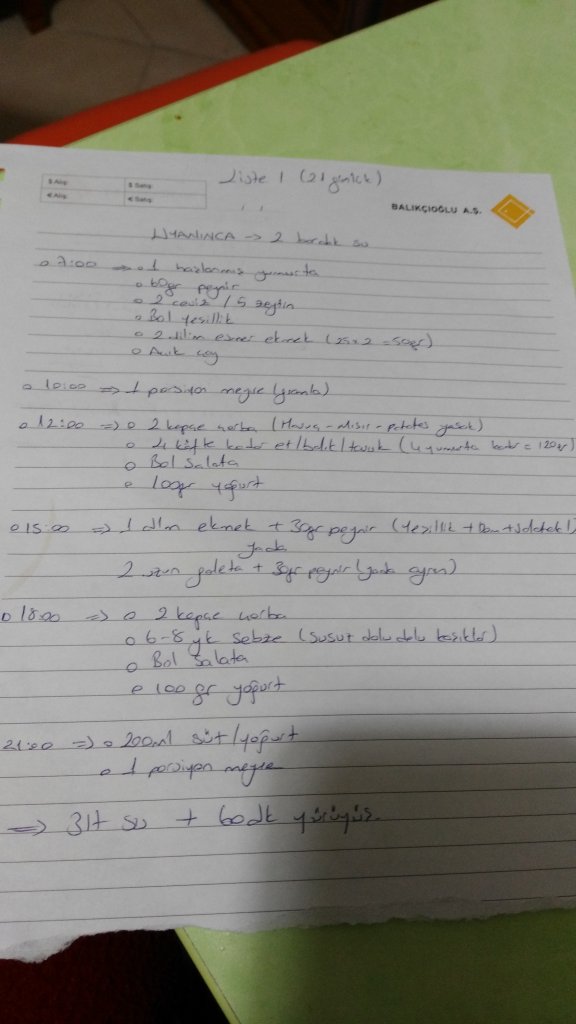 Liste 1 (21 günlük)
$ Alış: $ Satış:
€ Alış: € Satış:
BALIKÇIOĞLU A.Ş.
UYANINCA → 2 bardak su
o 7:00 ⇒ o 1 haşlanmış yumurta
o 60gr peynir
o 2 ceviz / 5 zeytin
o Bol yeşillik
o 2 dilim esmer ekmek (25x2=50gr)
o Açık çay
o 10:00 ⇒ 1 porsiyon meyve
o 12:00 ⇒ o 2 kepçe çorba (Havuç - Mısır - patates yasak)
o 4 köfte kadar et/balık/tavuk (4 yumurta kadar = 120gr)
o Bol salata
o 100gr yoğurt
o 15:00 ⇒ 1 dlm ekmek + 30gr peynir (Yeşillik + Dom + Salatalık)
yada
2 uzun galeta + 30gr peynir (yada ayran)
o 18:00 ⇒ o 2 kepçe çorba
o 6-8 yk sebze
o Bol salata
o 100 gr yoğurt
21:00 ⇒ o 200ml süt/yoğurt
o 1 porsiyon meyve
⇒ 3lt su + 60dk yürüyüş.